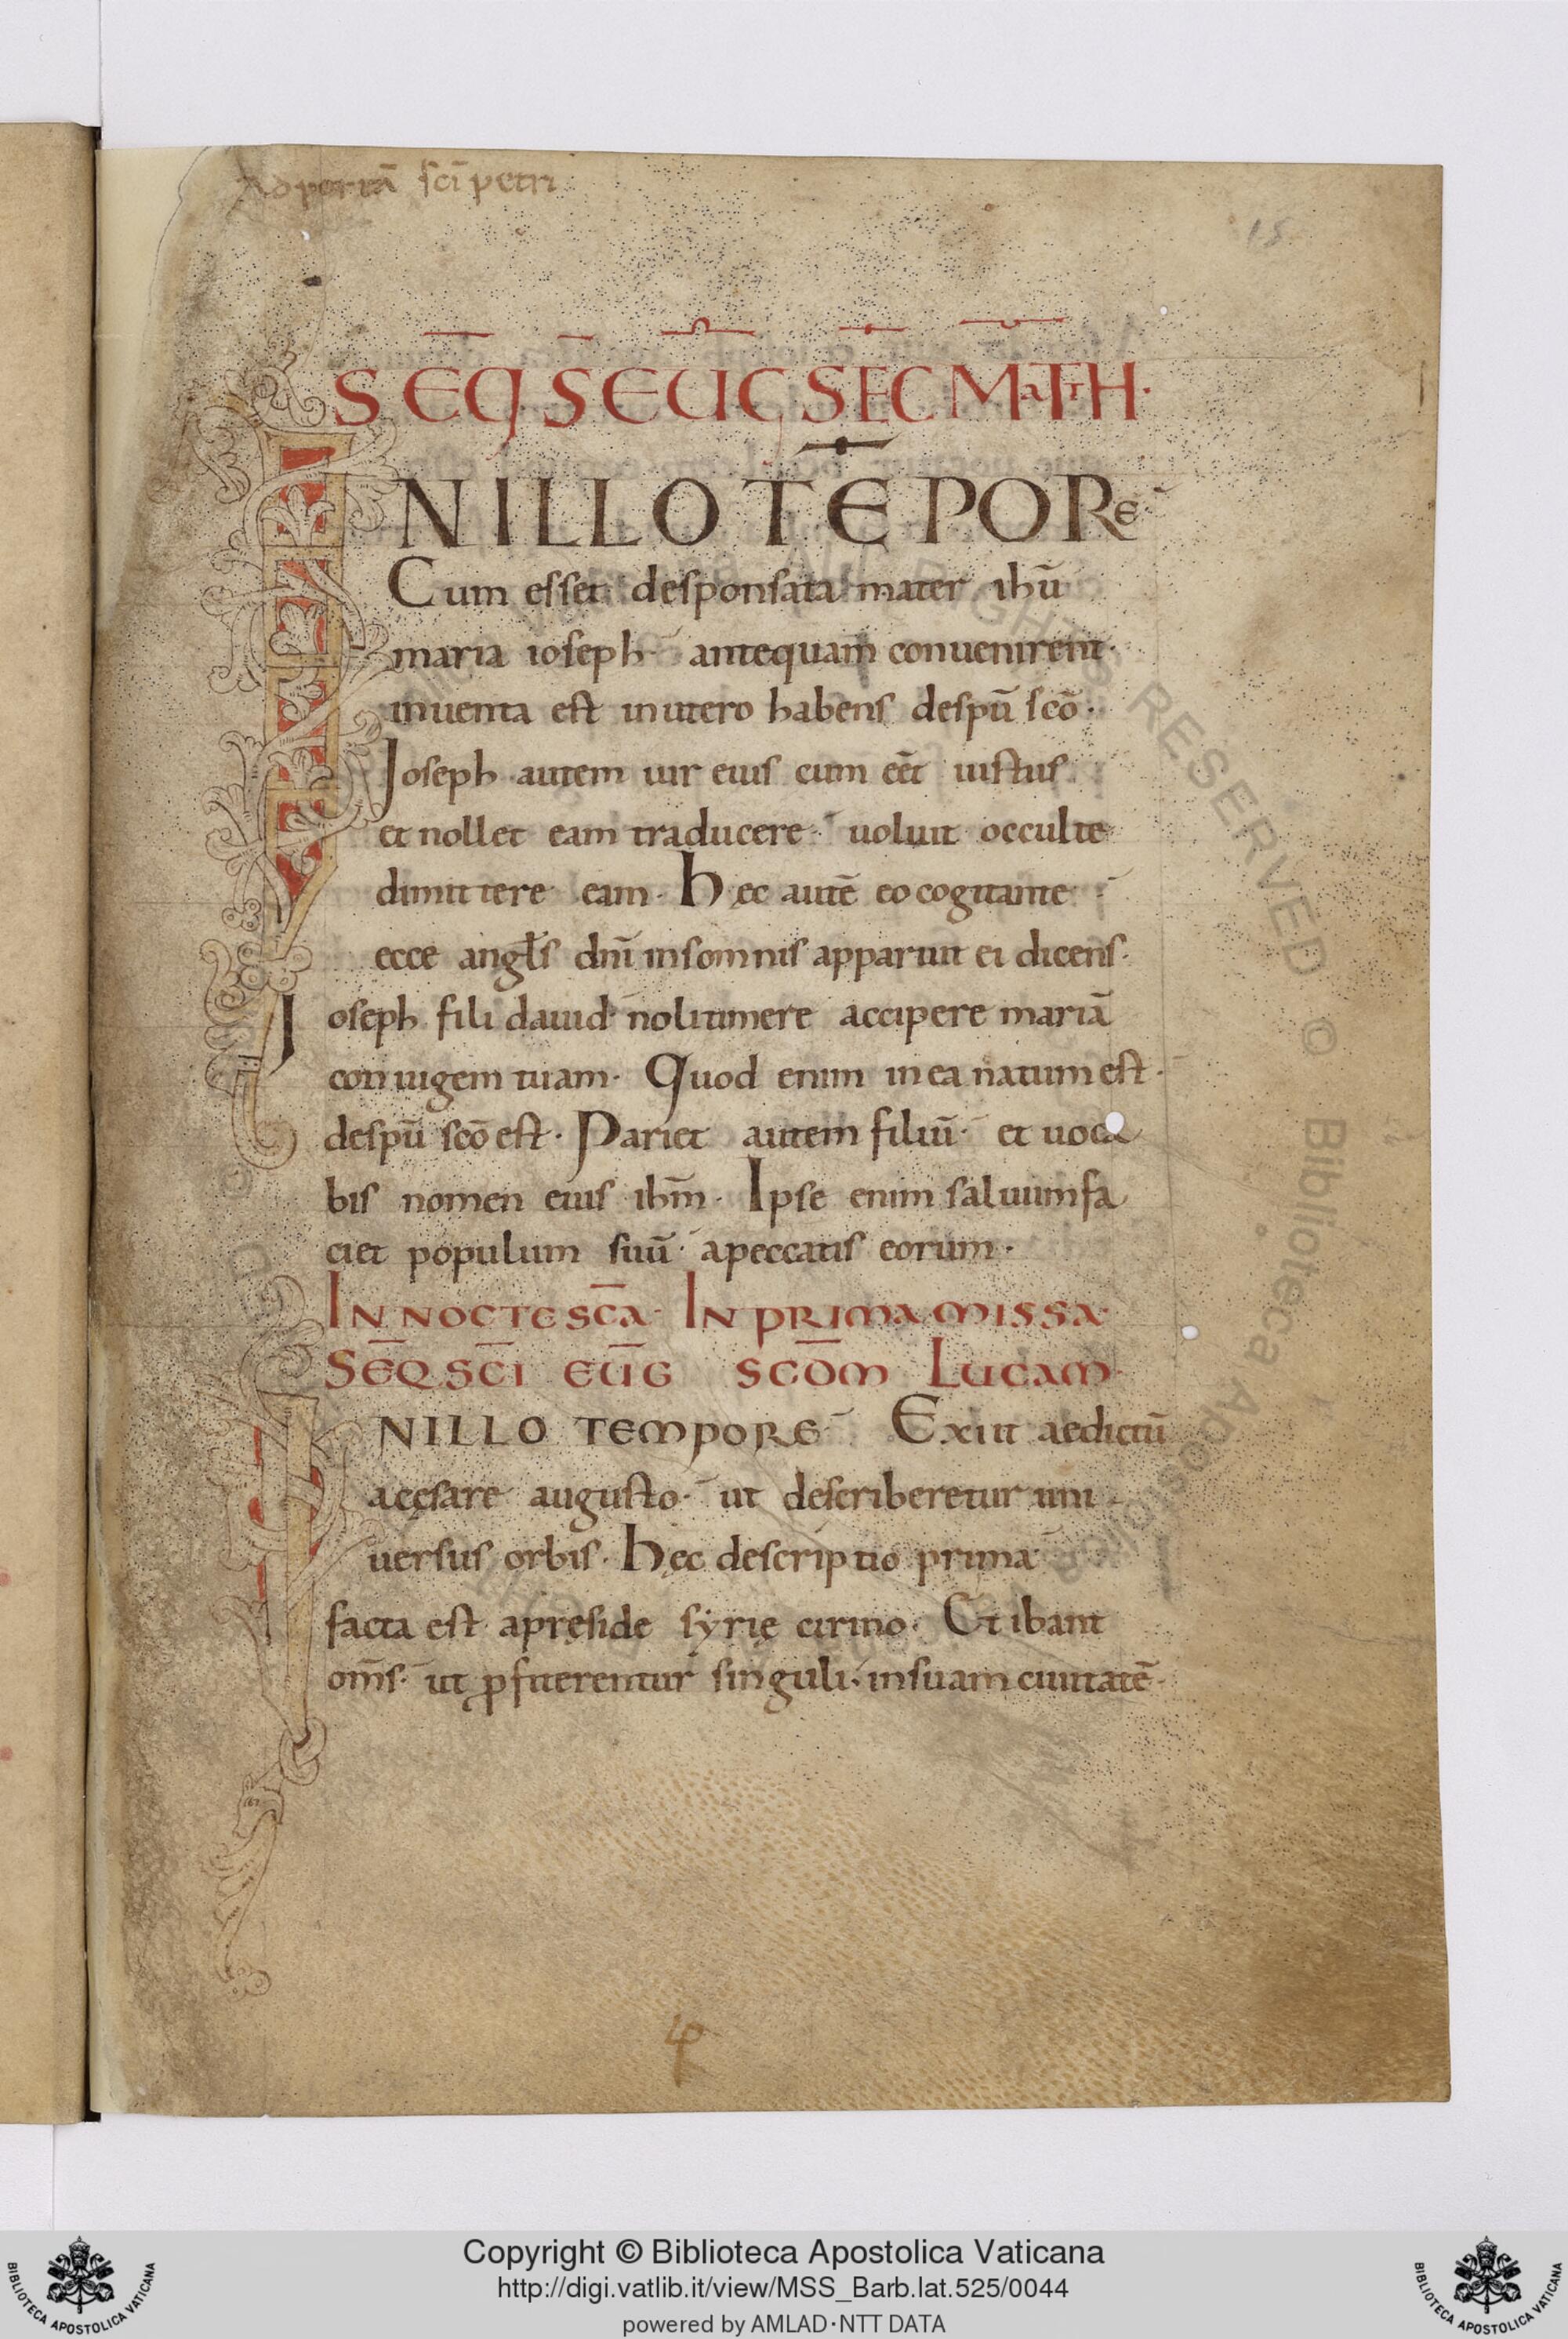 Ad portā sc̄i petri
18
SĒQ S̄ EŪG SEC̄ MATTH̄·
IN ILLO TĒPORE·
Cum esset desponsata mater ihū
maria ioseph· antequam conuenirent·
inuenta est inutero habens despū scō·
Ioseph autem uir eius cum eēt iustus·
et nollet eam traducere· uoluit occulte
dimittere eam· Hęc autē eo cogitante·
ecce angl̄s dnī insomnis apparuit ei dicens·
Ioseph fili dauid· nolitimere accipere mariā
coniugem tuam· Quod enim inea natum est·
despū scō est· Pariet autem filiū· et uoca
bis nomen eius ihm̄· Ipse enim saluumfa
ciet populum suū· apeccatis eorum·
IN NOCTE SC̄A· IN PRIMA MISSA·
SĒQ SC̄I EŪG SCD̄M LUCAM·
IN ILLO TEMPORE· Exiit aedictū
acęsare augusto· ut describeretur uni
uersus orbis· Hęc descriptio prima·
facta est apręside syrię cirino· Et ibant
om̄s· ut ꝓfiterentur singuli· insuam ciuitatē·
Copyright © Biblioteca Apostolica Vaticana
http://digi.vatlib.it/view/MSS_Barb.lat.525/0044
powered by AMLAD·NTT DATA
BIBLIOTECA APOSTOLICA VATICANA
BIBLIOTECA APOSTOLICA VATICANA